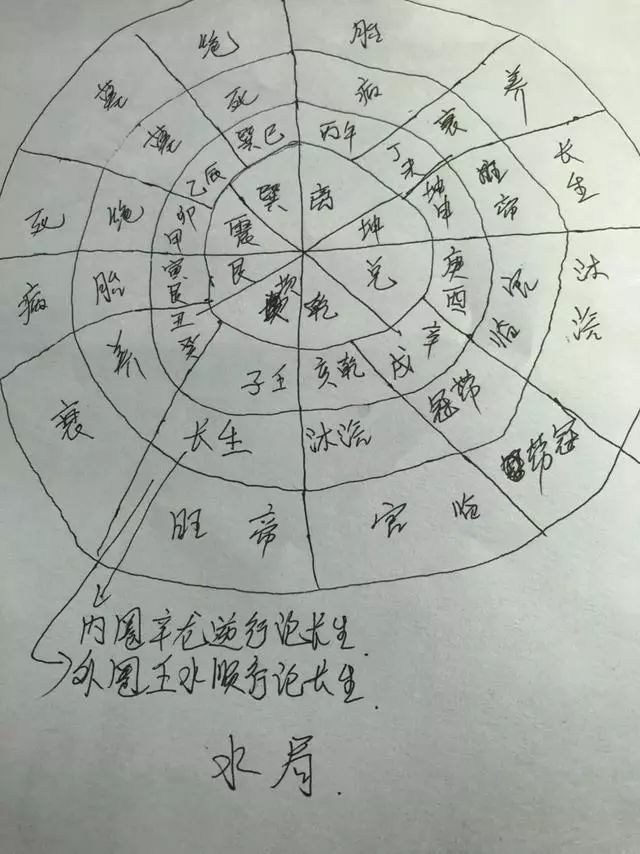 绝
胎
墓
死
病
养
墓
衰
长生
巽巳
丙午
丁未
乙辰
坤申
旺帝
死
绝
卯甲
巽
离
震
坤
庚酉
沐浴
病
胎
寅艮
艮
兑
官临
丑癸
坎
乾
辛戌
养
子壬
亥乾
冠带
衰
长生
沐浴
带冠
旺帝
官临
内圈辛龙逆行论长生.
外圈壬水顺行论长生.
水局.